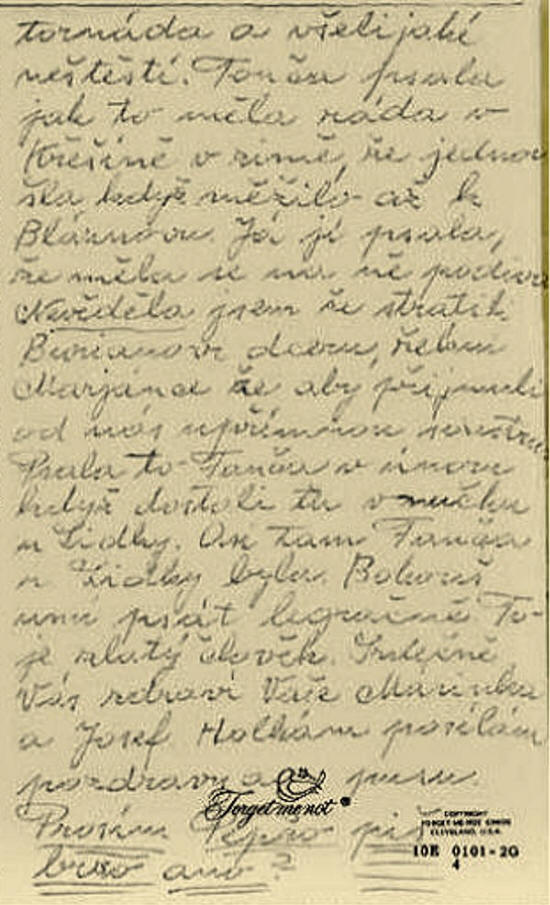 tornáda a všelijaké
neštěstí. Tonča psala
jak to měla ráda v
v zimě, že jednou
šla když měžilo až k
Já jí psala,
že měla se na ně
Nevěděla jsem že stratili
Burianovi dceru, řekni
Marjánce že aby přijmuli
od nás upřímnou soustra
Psala to Tonča v únoru
když dostali tu vnučku
u Lidky. Oni tam Tonča
u Lidky byla.
umí psát legračně To
je zlatý člověk. Srdečně
Vás zdraví Vaše Márinka
a Josef. Holkám posílám
pozdravy a pusu.
Forget me not ®
Prosím Pepro piš
brzo ano?
COPYRIGHT
FORGET ME NOT CARDS
CLEVELAND, U.S.A.
10E 0101-2G
4